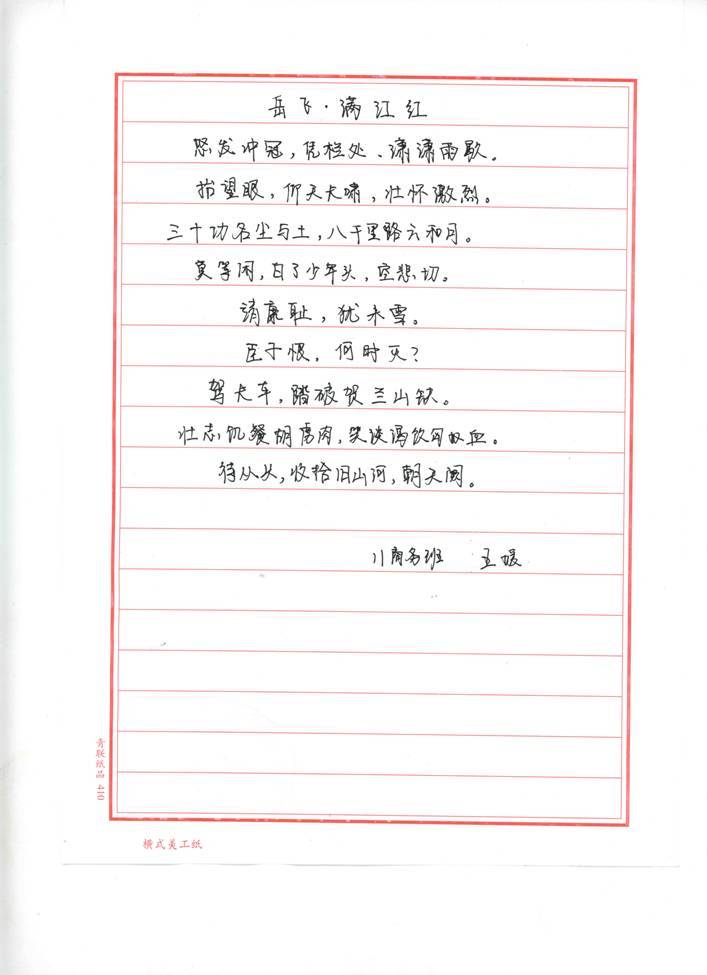 岳飞·满江红
怒发冲冠，凭栏处、潇潇雨歇。
抬望眼，仰天大啸，壮怀激烈。
三十功名尘与土，八千里路云和月。
莫等闲，白了少年头，空悲切。
靖康耻，犹未雪。
臣子恨，何时灭？
驾长车，踏破贺兰山缺。
壮志饥餐胡虏肉，笑谈渴饮匈奴血。
待从头，收拾旧山河，朝天阙。
11商务班 王媛
青联纸品 410
横式美工纸